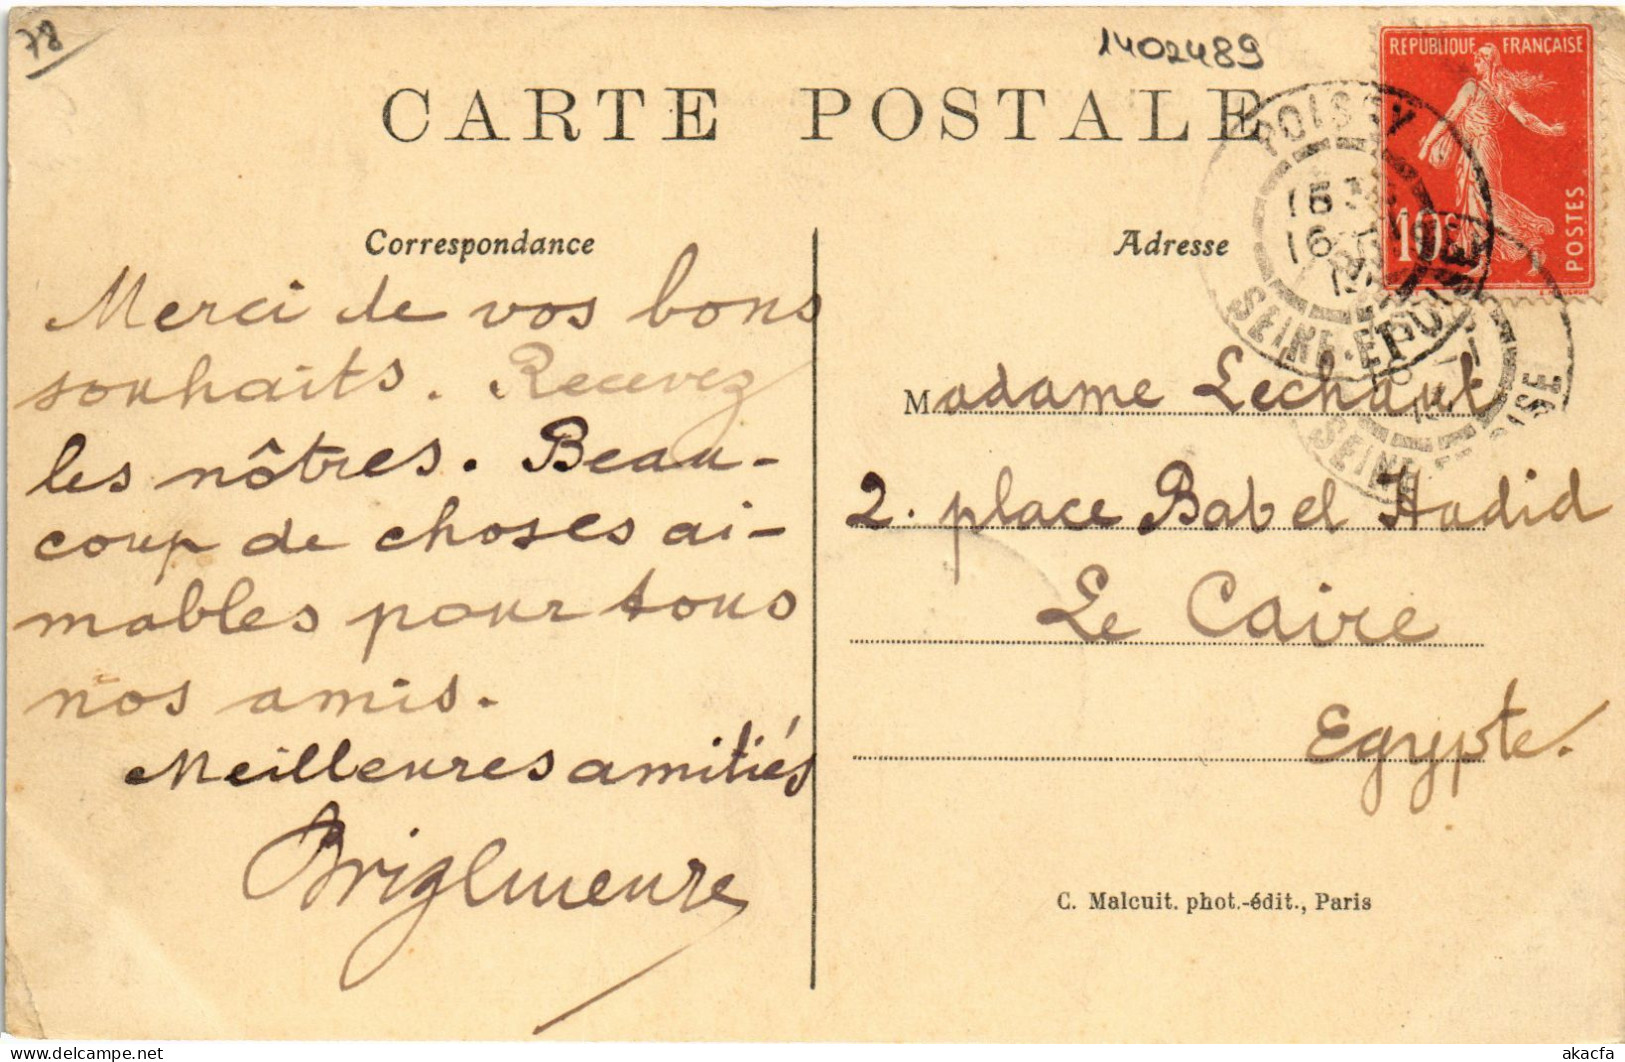 78
1402489
CARTE POSTALE
REPUBLIQUE FRANÇAISE
10c
POSTES
POISSY
SEINE-ET-OISE
Correspondance
Merci de vos bons
souhaits. Recevez
les nôtres. Beau-
coup de choses ai-
mables pour tous
nos amis.
Meilleures amitiés
Adresse
Madame Lechaut
2. place Bab el Hadid
Le Caire
Egypte.
C. Malcuit. phot.-édit., Paris
www.delcampe.net
akacfa